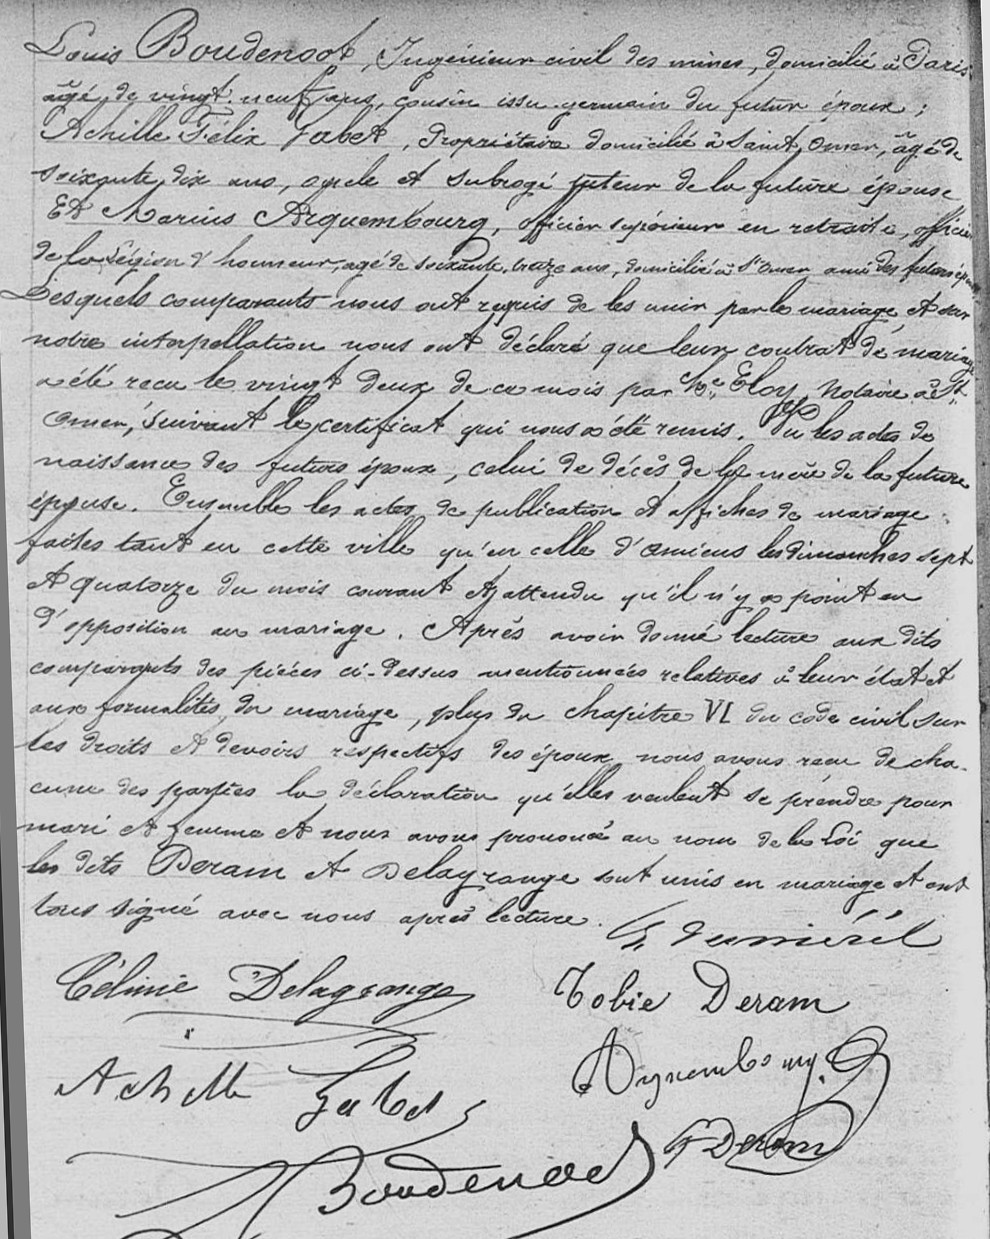 Louis Boudenoot, Ingénieur civil des mines, domicilié à Paris
âgé de vingt-neuf ans, cousin issu germain du futur époux ;
Achille Félix Gabet, Propriétaire domicilié à Saint Omer, âgé de
soixante dix ans, oncle et subrogé tuteur de la future épouse
Et Marius Arquembourg, officier supérieur en retraite, officier
de la Légion d'honneur, agé de soixante treize ans, domicilié à St Omer ami des futurs époux
Lesquels comparants nous ont requis de les unir par le mariage et sur
notre interpellation nous ont déclaré que leur contrat de mariage
a été recu le vingt deux de ce mois par Me Eloy Notaire à St
Omer, suivant le certificat qui nous a été remis. Vu les actes de
naissance des futurs époux, celui de décès de la mère de la future
épouse. Ensemble les actes de publication et affiches de mariage
faites tant en cette ville qu'en celle d'Amiens les dimanches sept
et quatorze du mois courant et attendu qu'il n'y a point eu
d'opposition au mariage. Après avoir donné lecture aux dits
comparants des pièces ci-dessus mentionnées relatives à leur état et
aux formalités du mariage, plus du chapitre VI du code civil sur
les droits et devoirs respectifs des époux nous avons recu de cha-
cune des parties la déclaration qu'elles veulent se prendre pour
mari et femme et nous avons prononcé au nom de la Loi que
les dits Deram et Delagrange sont unis en mariage et ont
tous signé avec nous après lecture.
Duméril
Célinie Delagrange
Tobie Deram
Achille Gabet
Arquembourg
F Deram
Boudenoot